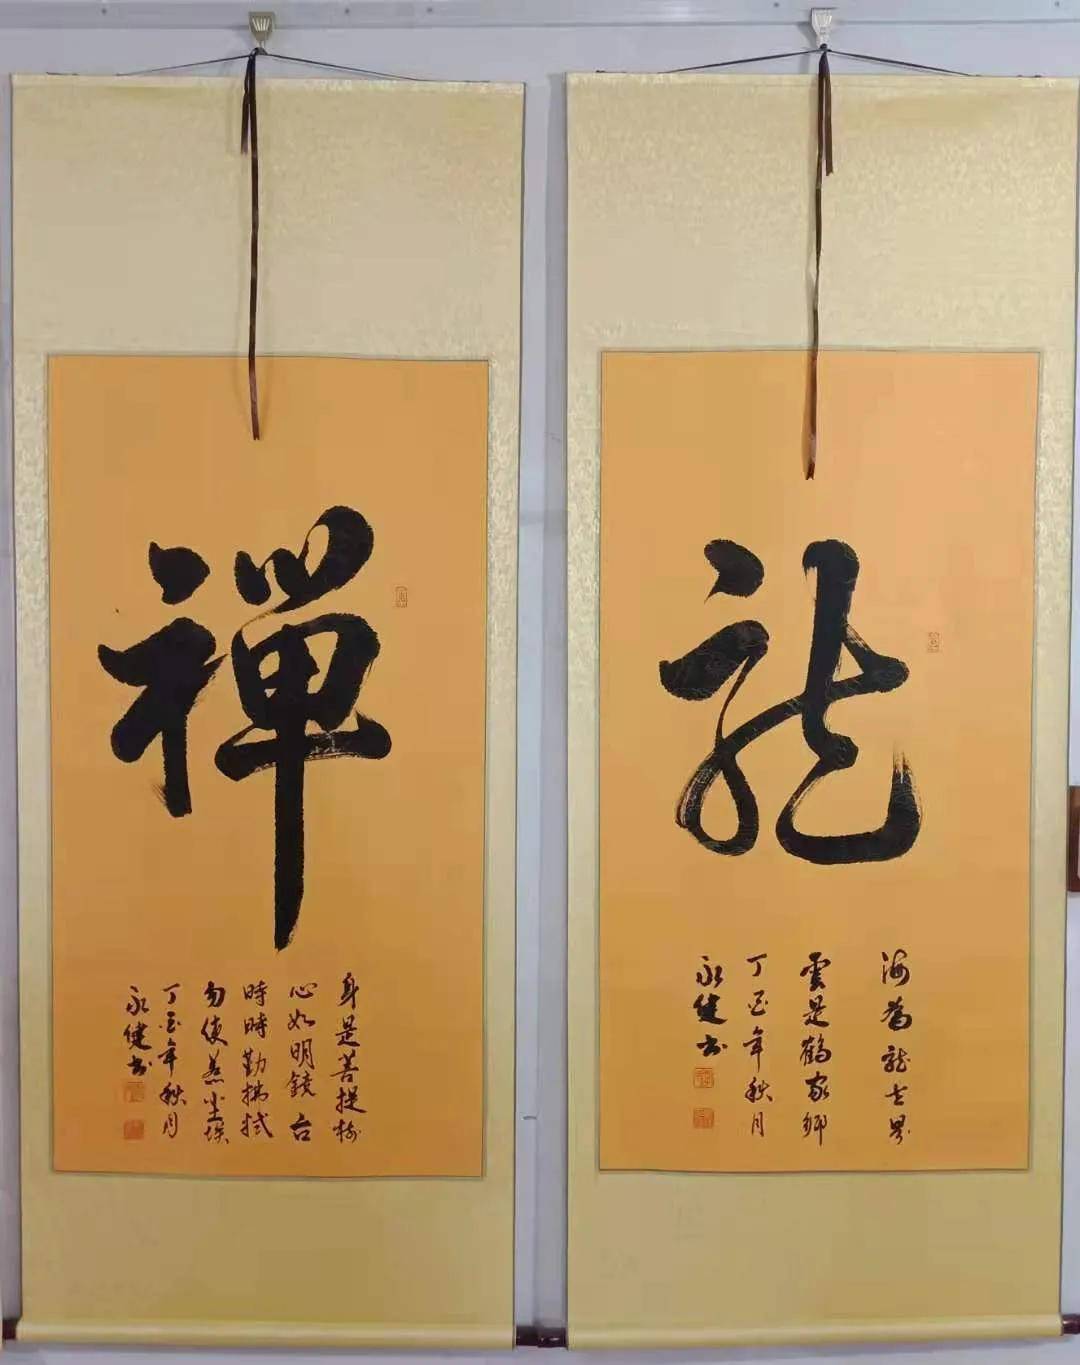 龍
海為龍世界
雲是鶴家鄉
丁酉年秋月
永健书
禪
身是菩提樹
心如明鏡台
時時勤拂拭
勿使惹尘埃
丁酉年秋月
永健书